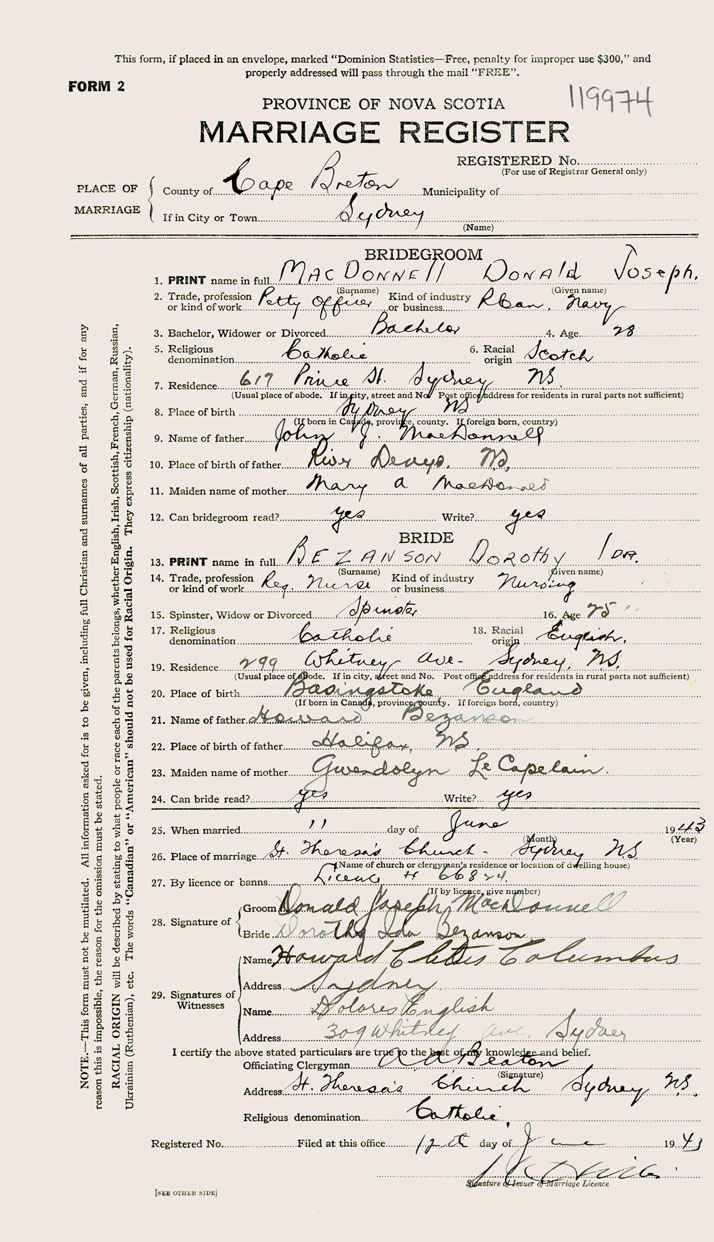 This form, if placed in an envelope, marked “Dominion Statistics—Free, penalty for improper use $300,” and
properly addressed will pass through the mail “FREE”.
FORM 2
119974
PROVINCE OF NOVA SCOTIA
MARRIAGE REGISTER
REGISTERED No.
(For use of Registrar General only)
PLACE OF MARRIAGE
County of Cape Breton Municipality of
If in City or Town Sydney
(Name)
BRIDEGROOM
1. PRINT name in full MACDONNELL DONALD JOSEPH.
(Surname) (Given name)
2. Trade, profession or kind of work Petty Officer Kind of industry or business R Can. Navy
3. Bachelor, Widower or Divorced Bachelor 4. Age 28
5. Religious denomination Catholic 6. Racial origin Scotch
7. Residence 617 Prince St. Sydney NS.
(Usual place of abode. If in city, street and No. Post office address for residents in rural parts not sufficient)
8. Place of birth Sydney NS
(If born in Canada, province, county. If foreign born, country)
9. Name of father John J. MacDonnell
10. Place of birth of father River Denys. N.S.
11. Maiden name of mother Mary A MacDonald
12. Can bridegroom read? yes Write? yes
BRIDE
13. PRINT name in full BEZANSON DOROTHY IDA.
(Surname) (Given name)
14. Trade, profession or kind of work Reg. Nurse Kind of industry or business Nursing
15. Spinster, Widow or Divorced Spinster 16. Age 25
17. Religious denomination Catholic 18. Racial origin English.
19. Residence 299 Whitney Ave- Sydney, NS.
(Usual place of abode. If in city, street and No. Post office address for residents in rural parts not sufficient)
20. Place of birth Basingstoke, England
(If born in Canada, province, county. If foreign born, country)
21. Name of father Howard Bezanson
22. Place of birth of father Halifax, NS
23. Maiden name of mother Gwendolyn Le Capelain.
24. Can bride read? yes Write? yes
25. When married 11 day of June 1943
(Month) (Year)
26. Place of marriage St. Theresa's Church - Sydney N.S.
(Name of church or clergyman's residence or location of dwelling house)
27. By licence or banns Licence # 66824.
(If by licence, give number)
28. Signature of
Groom Donald Joseph MacDonnell
Bride Dorothy Ida Bezanson
29. Signatures of Witnesses
Name Howard Cletus Columbus
Address Sydney
Name Dolores English
Address 309 Whitney Ave. Sydney
I certify the above stated particulars are true to the best of my knowledge and belief.
Officiating Clergyman Beaton
(Signature)
Address St. Theresa's Church Sydney N.S.
Religious denomination Catholic.
Registered No. Filed at this office 12th day of June 1943
Signature of Issuer of Marriage Licence
[SEE OTHER SIDE]
NOTE.—This form must not be mutilated. All information asked for is to be given, including full Christian and surnames of all parties, and if for any
reason this is impossible, the reason for the omission must be stated.
RACIAL ORIGIN will be described by stating to what people or race each of the parents belongs, whether English, Irish, Scottish, French, German, Russian,
Ukrainian (Ruthenian), etc. The words “Canadian” or “American” should not be used for Racial Origin. They express citizenship (nationality).